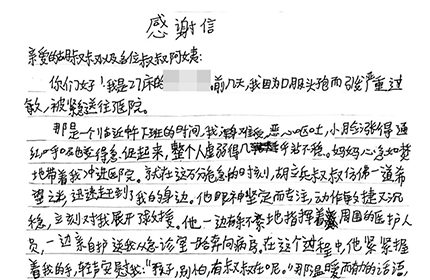 感谢信
亲爱的胡叔叔以及各位叔叔阿姨:
你们好!我是27床的 前几天,我因为口服头孢而引发严重过
敏,被紧急送往医院。
那是一个临近中下班的时间,我浑身难受,恶心呕吐,小脸涨得通
红,呼吸变得急促起来,整个人虚弱得几乎站不稳。妈妈心急如焚
地带着我冲进医院。就在这万分危急的时刻,胡立兵叔叔仿佛一道希
望之光,迅速赶到了我的身边。他眼神坚定而专注,动作敏捷又沉
稳,立刻对我展开了救援。他一边有条不紊地指挥着周围的医护人
员,一边亲自护送我从急诊室一路奔向病房。在这个过程中,他紧紧握
着我的手,轻声安慰我:"孩子,别怕,有叔叔在呢。"那温暖而有力的话语,